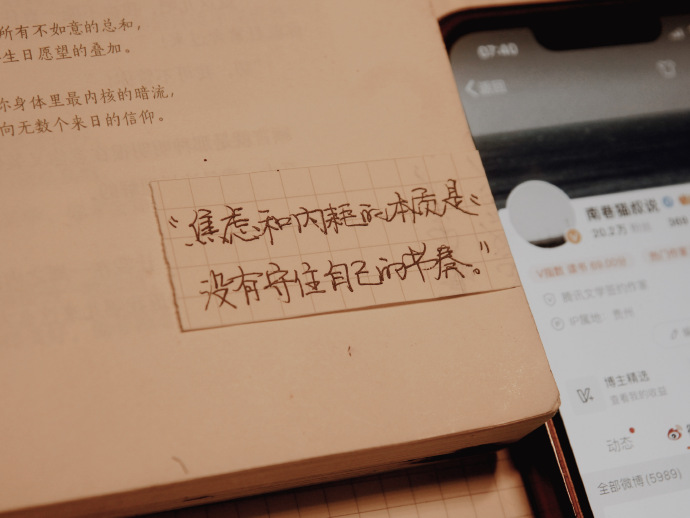 所有不如意的总和，
生日愿望的叠加。
你身体里最内核的暗流，
向无数个来日的信仰。
“焦虑和内耗的本质是
没有守住自己的节奏。”
07:40
返回
南巷猫叔说
20.2万 粉丝
腾讯文学签约作家
IP属地：贵州
博主精选
查看我的收益
动态
全部微博(5989)